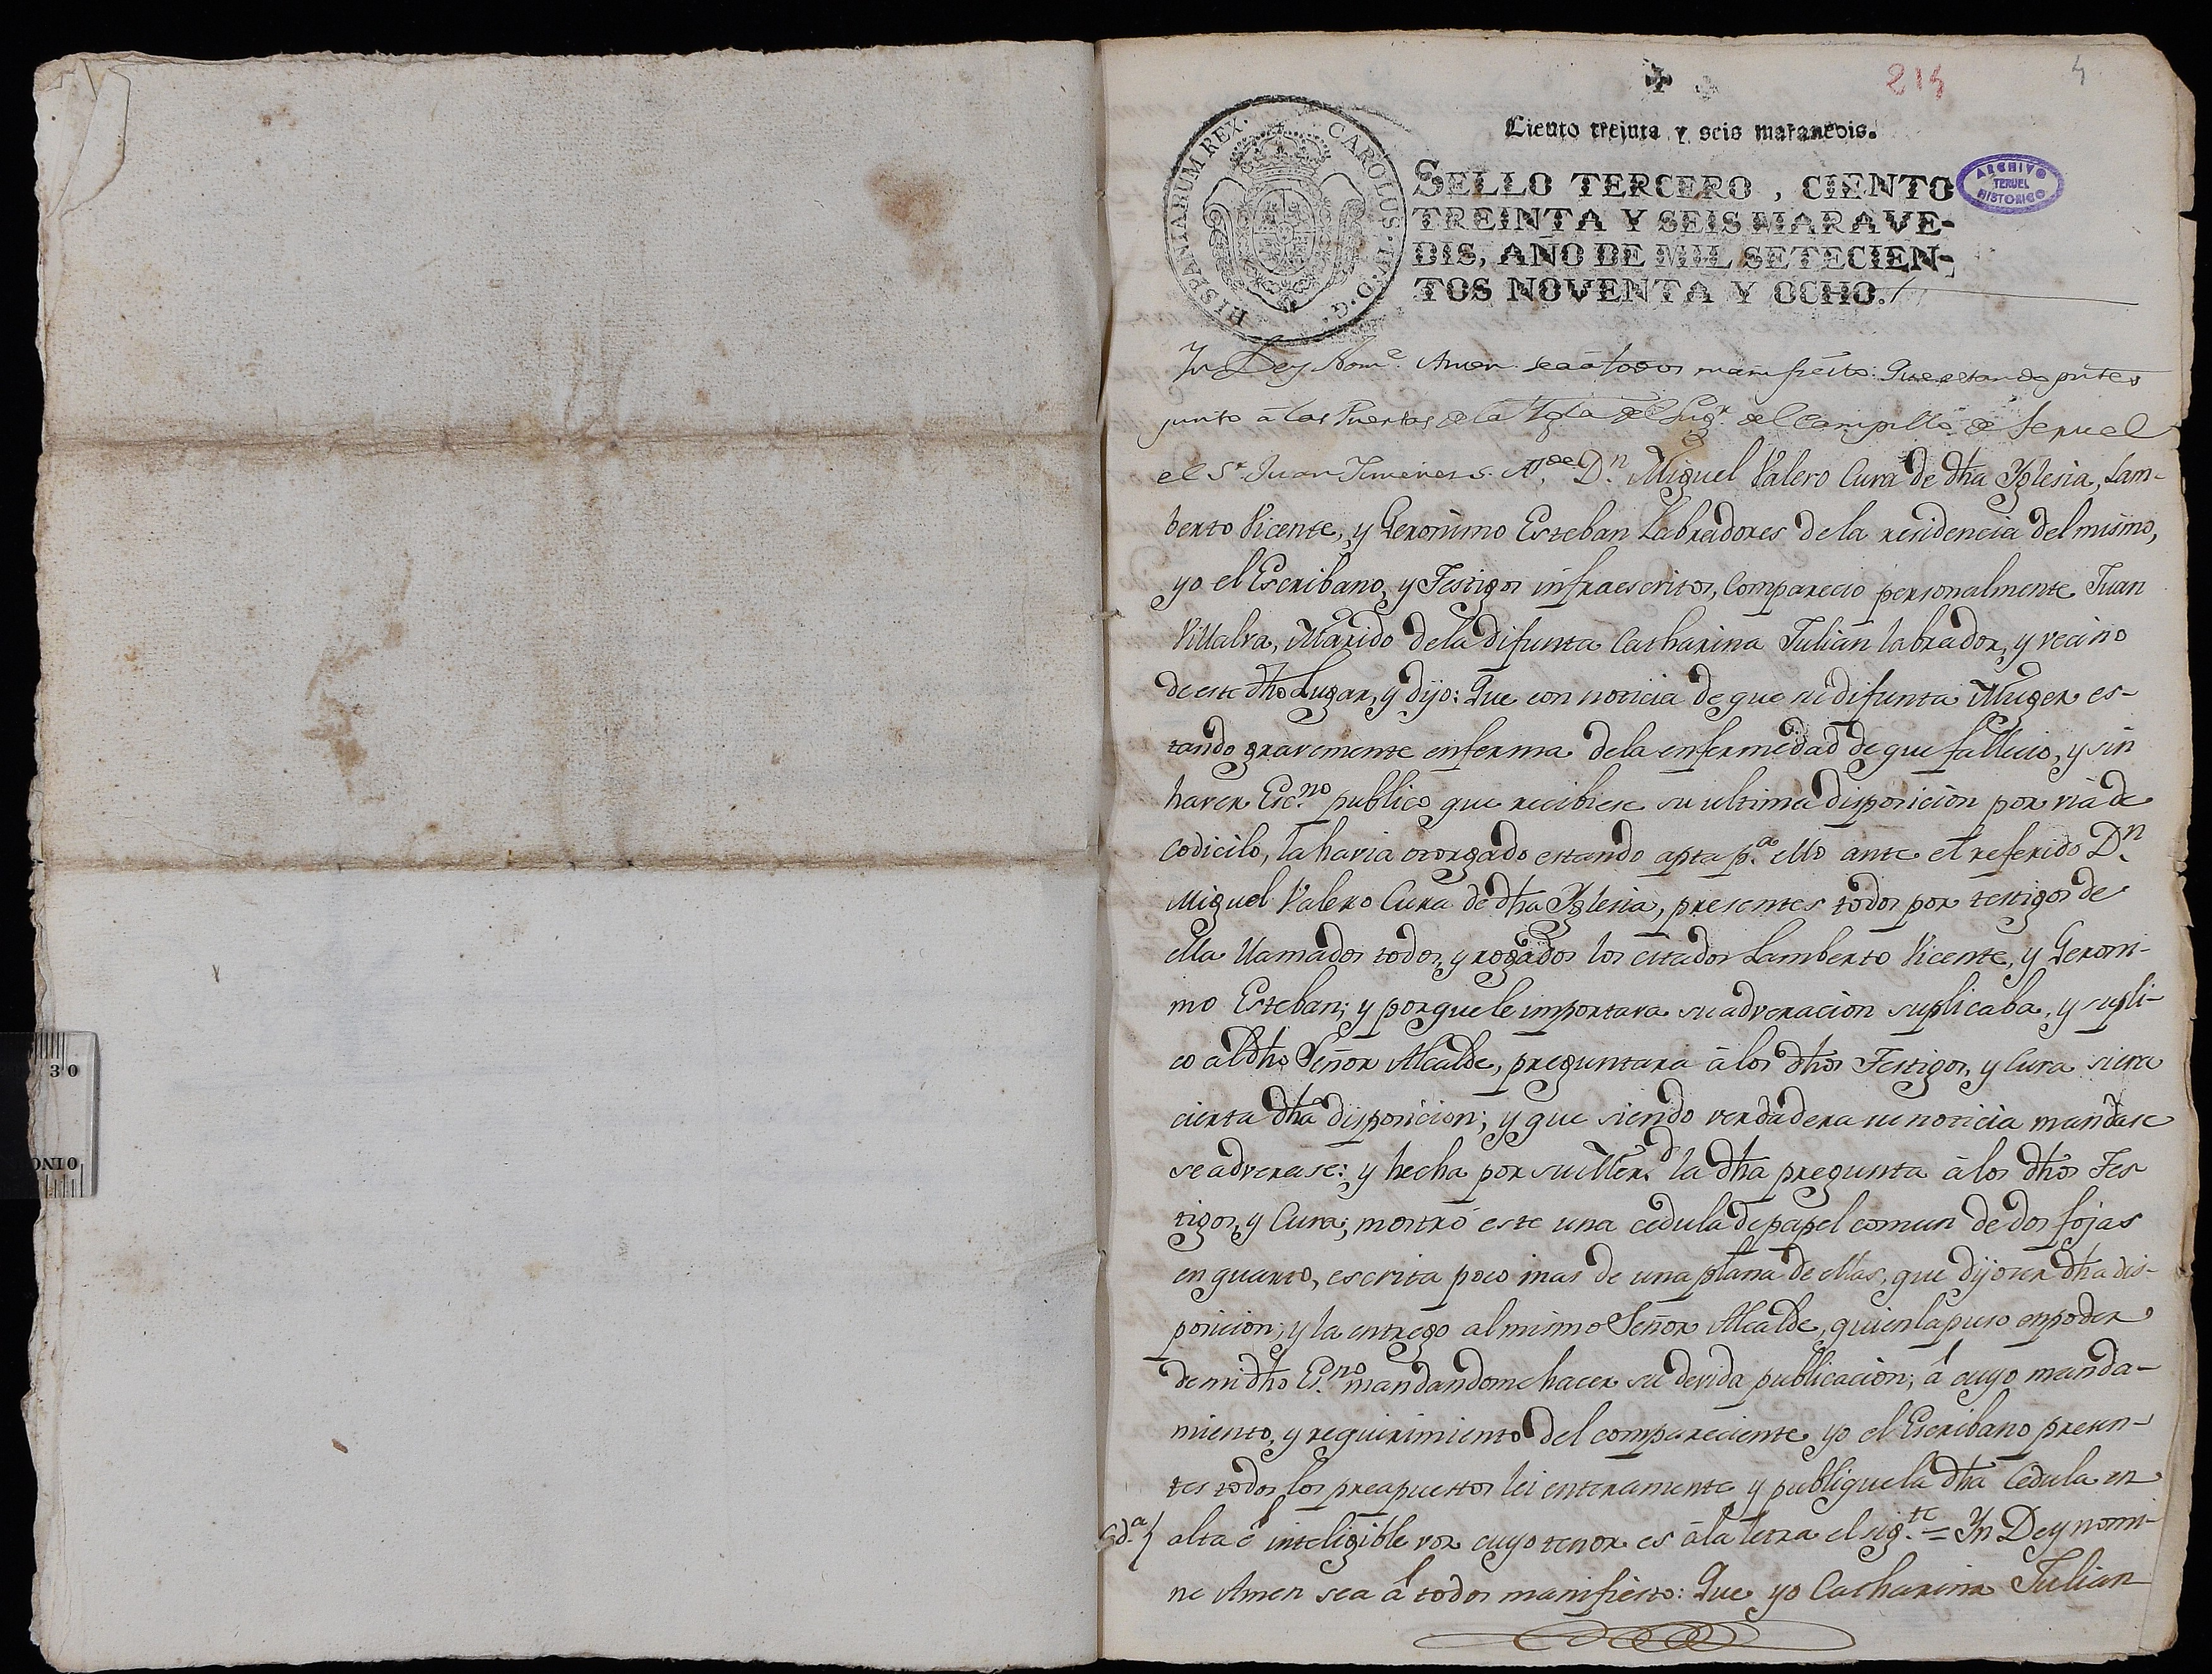 214 4
Ciento treinta y seis maravedis.
HISPANIARUM REX. CAROLUS. IV. D. G.
SELLO TERCERO, CIENTO
TREINTA Y SEIS MARAVE-
DIS, AÑO DE MIL SETECIEN-
TOS NOVENTA Y OCHO.
ARCHIVO
TERUEL
HISTORICO
Yn Dey Nom.e Amen sea á todos manifiesto: Que estando pntes
junto á las Puertas de la Ygla del Lug.r del Campillo de Teruel
el S.r Juan Ximenez A.de D.n Miguel Valero Cura de dha Yglesia, Lam-
berto Vicente, y Geronimo Esteban Labradores de la residencia del mismo,
yo el Escribano, y Testigos infraescritos, comparecio personalmente Juan
Villalva, Marido dela difunta Catharina Julian labrador, y vecino
de este dho Lugar, y dijo: Que con noticia de que su difunta Muger es-
tando gravemente enferma dela enfermedad de que fallecio, y sin
haver Esc.no publico que recibiese su ultima disposicion por via de
codicilo, la havia otorgado estando apta p.a ello ante el referido D.n
Miguel Valero Cura de dha Yglesia, presentes todos por testigos de
ella llamados todos, y rogados los citados Lamberto Vicente, y Geroni-
mo Esteban; y porque le importava su adveracion suplicaba, y supli-
co al dho Señor Alcalde, preguntara á los dhos Testigos, y Cura si era
cierta dha disposicion; y que siendo verdadera su noticia mandase
se adverase: y hecha por su Mer.d la dha pregunta á los dhos Tes
tigos, y Cura; mostró este una cedula de papel comun de dos fojas
en quarto, escrita poco mas de una plana de ellas, que dijo ser dha dis-
posicion; y la entrego al mismo Señor Alcalde, quien la puso en poder
de mi dho Es.no mandandome hacer su devida publicacion; á cuyo manda-
miento, y requirimiento del compareciente yo el Escribano presen-
tes todos los preapuestos lei enteramente y publique la dha Cedula en
alta é inteligible voz cuyo tenor es á la letra el sig.te = Yn Dey nomi-
ne Amen sea á todos manifiesto: Que yo Catharina Julian
30